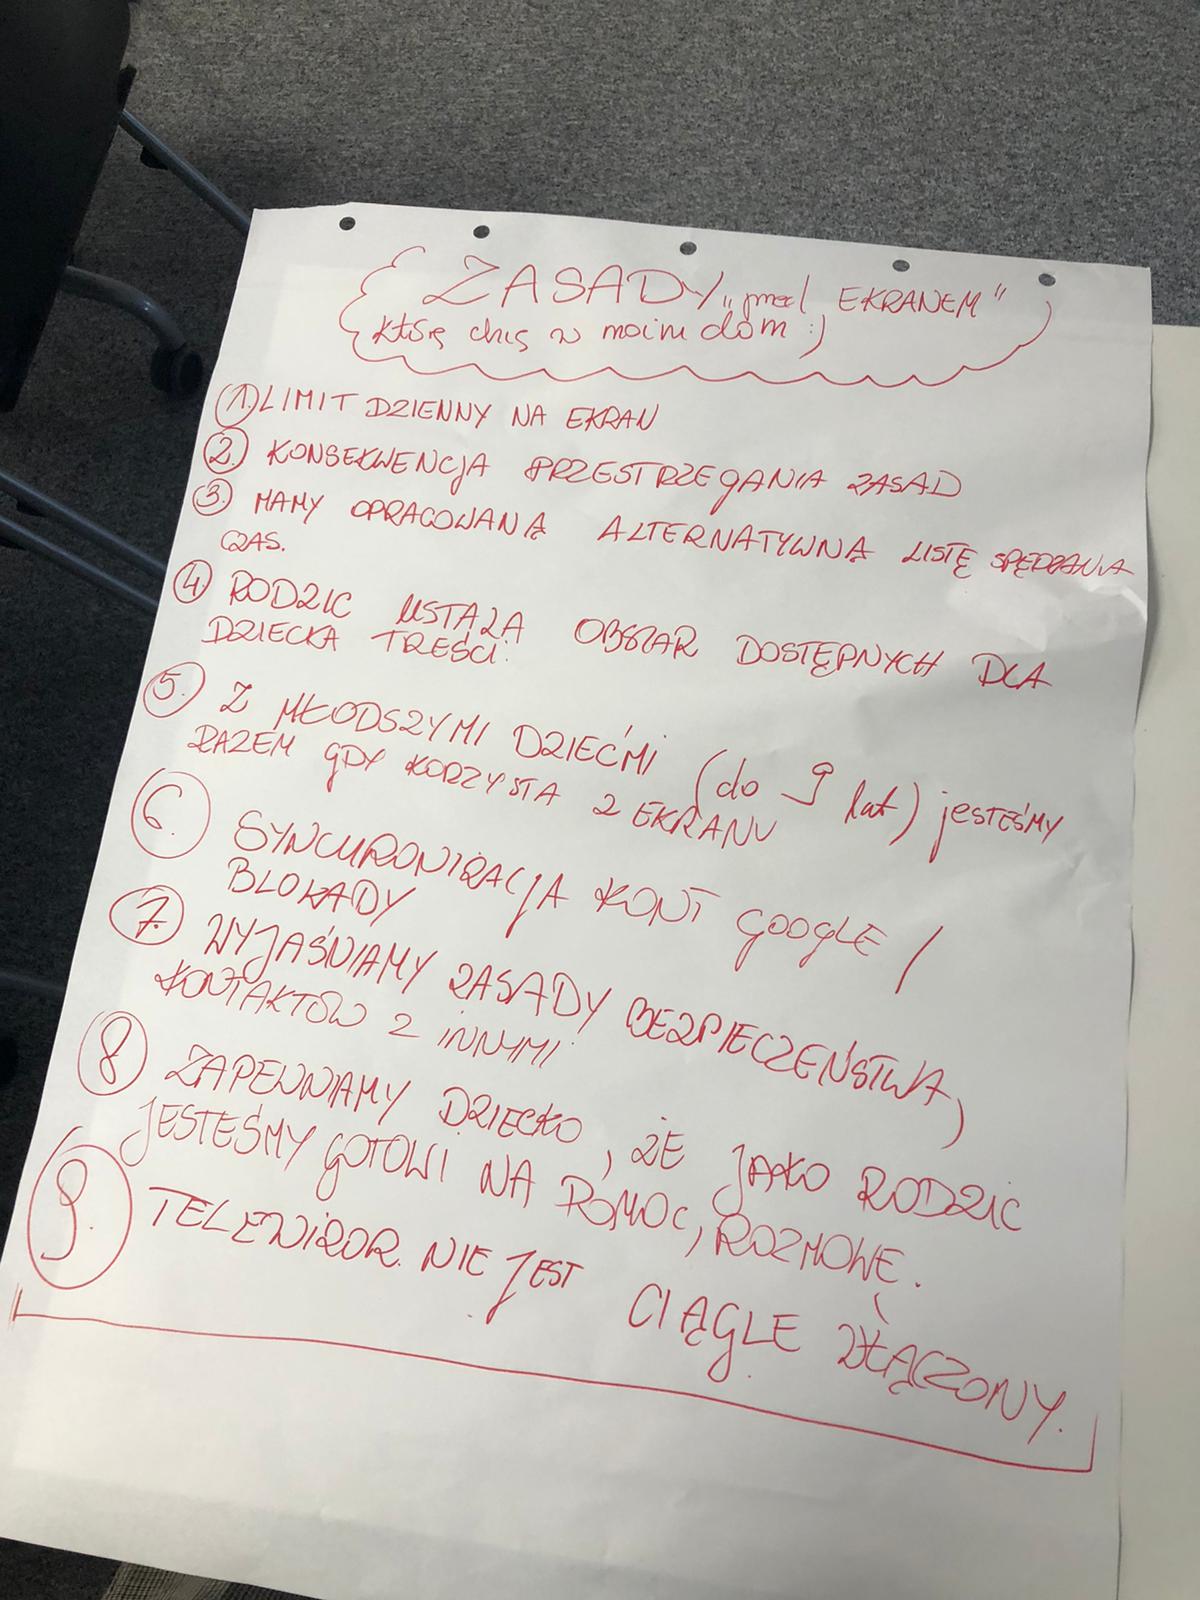 ZASADY „przed EKRANEM"
które chcę w moim dom :)
1. LIMIT DZIENNY NA EKRAN
2. KONSEKWENCJA PRZESTRZEGANIA ZASAD
3. MAMY OPRACOWANĄ ALTERNATYWNĄ LISTĘ SPĘDZANIA
CZAS.
4. RODZIC USTALA OBSZAR DOSTĘPNYCH DLA
DZIECKA TREŚCI.
5. Z MŁODSZYMI DZIEĆMI (do 9 lat) jESTEŚMY
RAZEM GDY KORZYSTA Z EKRANU
6. SYNCHRONIZACJA KONT GOOGLE /
BLOKADY
7. WYJAŚNIAMY ZASADY BEZPIECZEŃSTWA,
KONTAKTÓW Z INNYMI
8 ZAPEWNIAMY DZIECKO, ŻE JAKO RODZIC
JESTEŚMY GOTOWI NA POMOC, ROZMOWĘ.
9. TELEWIZOR NIE JEST CIĄGLE ZŁĄCZONY.